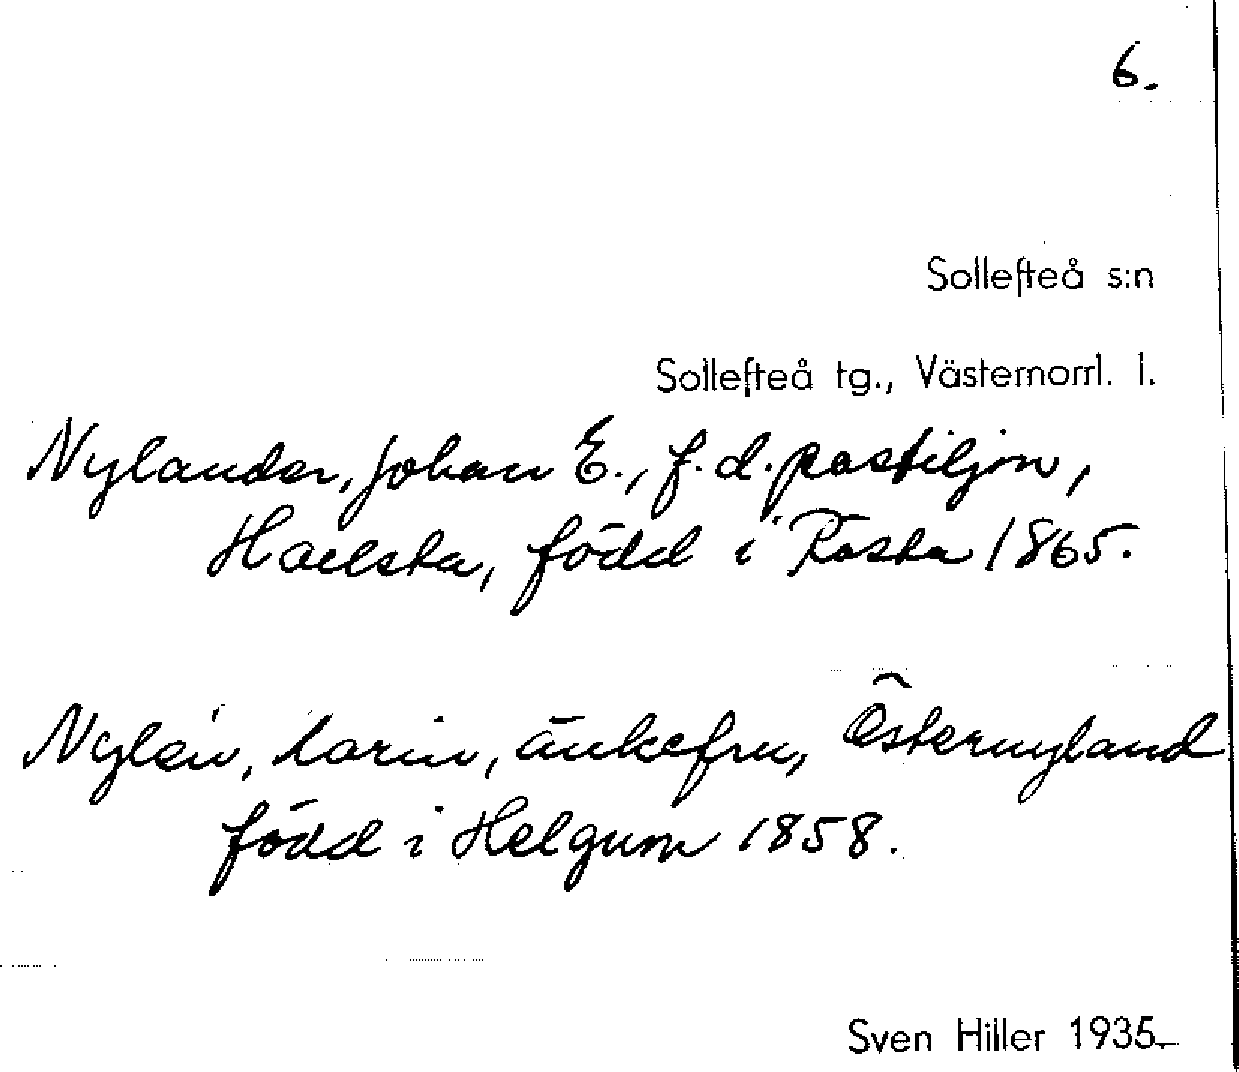 6.
Sollefteå s:n
Sollefteå tg., Västernorrl. l.
Nylander, Johan E., f.d. postiljon,
född i Rosta 1865.
Nylén, Karin, änkefru, Östernyland
född i Helgum 1858.
Sven Hiller 1935.